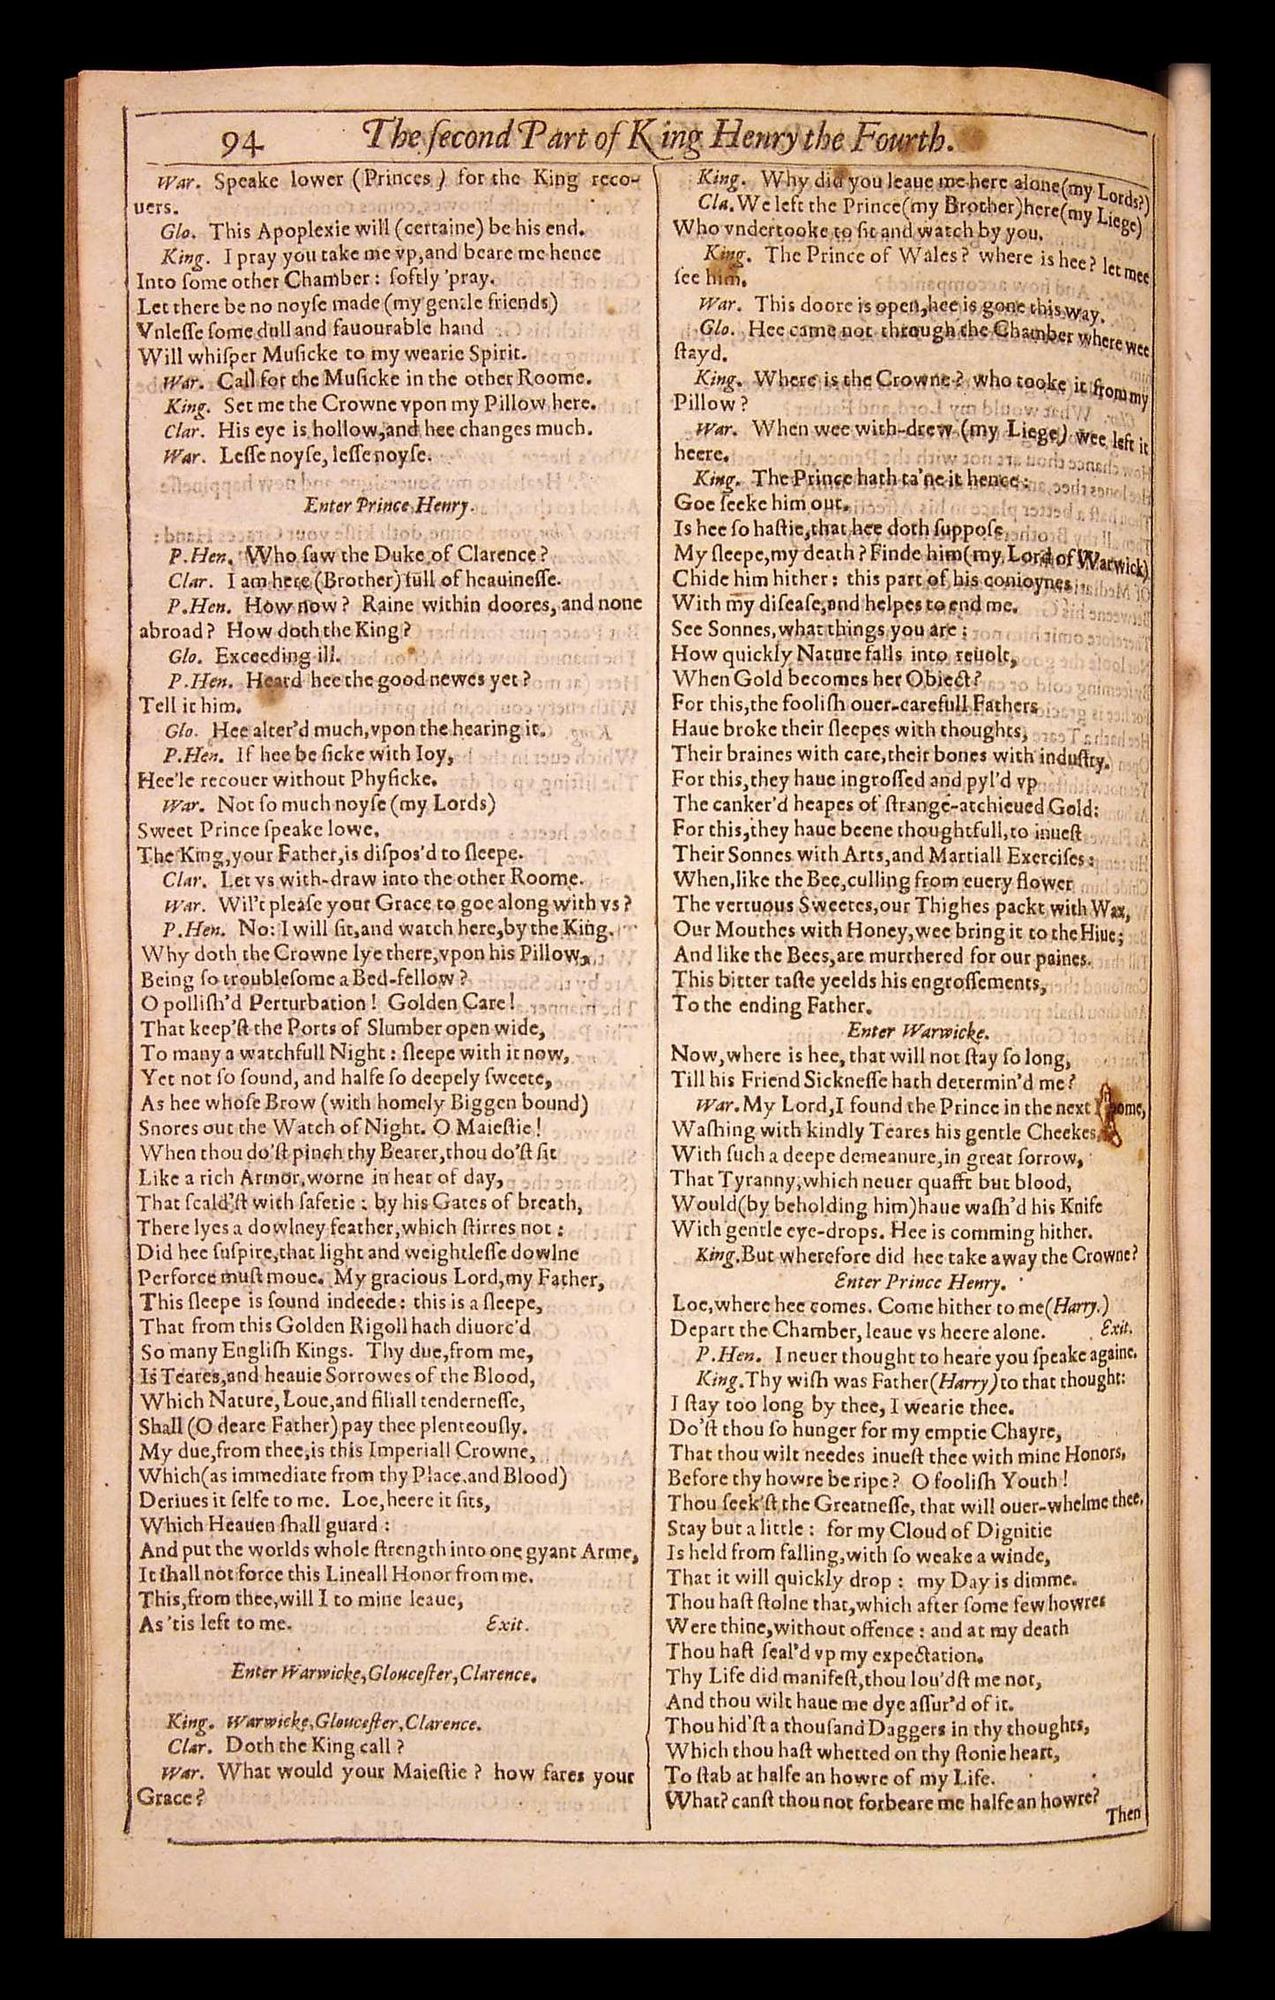 94 The ſecond Part of King Henry the Fourth.
War. Speake lower (Princes) for the King reco-
uers.
Glo. This Apoplexie will (certaine) be his end.
King. I pray you take me vp,and beare me hence
Into ſome other Chamber: ſoftly 'pray.
Let there be no noyſe made (my gentle friends)
Vnleſſe ſome dull and fauourable hand
Will whiſper Muſicke to my wearie Spirit.
War. Call for the Muſicke in the other Roome.
King. Set me the Crowne vpon my Pillow here.
Clar. His eye is hollow,and hee changes much.
War. Leſſe noyſe, leſſe noyſe.
Enter Prince Henry.
P.Hen. Who ſaw the Duke of Clarence?
Clar. I am here (Brother) full of heauineſſe.
P.Hen. How now? Raine within doores, and none
abroad? How doth the King?
Glo. Exceeding ill.
P.Hen. Heard hee the good newes yet?
Tell it him.
Glo. Hee alter'd much,vpon the hearing it.
P.Hen. If hee be ſicke with Ioy,
Hee'le recouer without Phyſicke.
War. Not ſo much noyſe (my Lords)
Sweet Prince ſpeake lowe,
The King,your Father,is diſpos'd to ſleepe.
Clar. Let vs with-draw into the other Roome.
War. Wil't pleaſe your Grace to goe along with vs?
P.Hen. No: I will ſit,and watch here,by the King.
Why doth the Crowne lye there,vpon his Pillow,
Being ſo troubleſome a Bed-fellow?
O polliſh'd Perturbation! Golden Care!
That keep'ſt the Ports of Slumber open wide,
To many a watchfull Night: ſleepe with it now,
Yet not ſo ſound, and halfe ſo deepely ſweete,
As hee whoſe Brow (with homely Biggen bound)
Snores out the Watch of Night. O Maieſtie!
When thou do'ſt pinch thy Bearer,thou do'ſt ſit
Like a rich Armor,worne in heat of day,
That ſcald'ſt with ſafetie: by his Gates of breath,
There lyes a dowlney feather,which ſtirres not:
Did hee ſuſpire,that light and weightleſſe dowlne
Perforce muſt moue. My gracious Lord,my Father,
This ſleepe is ſound indeede: this is a ſleepe,
That from this Golden Rigoll hath diuorc'd
So many Engliſh Kings. Thy due,from me,
Is Teares,and heauie Sorrowes of the Blood,
Which Nature, Loue,and filiall tenderneſſe,
Shall (O deare Father) pay thee plenteouſly.
My due,from thee,is this Imperiall Crowne,
Which (as immediate from thy Place,and Blood)
Deriues it ſelfe to me. Loe,heere it ſits,
Which Heauen ſhall guard:
And put the worlds whole ſtrength into one gyant Arme,
It ſhall not force this Lineall Honor from me.
This,from thee,will I to mine leaue,
As 'tis left to me. Exit.
Enter Warwicke,Glouceſter,Clarence.
King. Warwicke,Glouceſter,Clarence.
Clar. Doth the King call?
War. What would your Maieſtie? how fares your
Grace?
King. Why did you leaue me here alone(my Lords?)
Cla. We left the Prince(my Brother)here(my Liege)
Who vndertooke to ſit and watch by you.
King. The Prince of Wales? where is hee? let mee
ſee him.
War. This doore is open,hee is gone this way.
Glo. Hee came not through the Chamber where wee
ſtayd.
King. Where is the Crowne? who tooke it from my
Pillow?
War. When wee with-drew (my Liege) wee left it
heere.
King. The Prince hath ta'ne it hence:
Goe ſeeke him out.
Is hee ſo haſtie,that hee doth ſuppoſe
My ſleepe,my death? Finde him(my Lord of Warwick)
Chide him hither: this part of his conioynes
With my diſeaſe,and helpes to end me.
See Sonnes,what things you are:
How quickly Nature falls into reuolt,
When Gold becomes her Obiect?
For this,the fooliſh ouer-carefull Fathers
Haue broke their ſleepes with thoughts,
Their braines with care,their bones with induſtry.
For this,they haue ingroſſed and pyl'd vp
The canker'd heapes of ſtrange-atchieued Gold:
For this,they haue beene thoughtfull,to inueſt
Their Sonnes with Arts,and Martiall Exerciſes:
When,like the Bee,culling from euery flower
The vertuous Sweetes,our Thighes packt with Wax,
Our Mouthes with Honey,wee bring it to the Hiue;
And like the Bees,are murthered for our paines.
This bitter taſte yeelds his engroſſements,
To the ending Father.
Enter Warwicke.
Now,where is hee, that will not ſtay ſo long,
Till his Friend Sickneſſe hath determin'd me?
War. My Lord,I found the Prince in the next
Waſhing with kindly Teares his gentle Cheekes,
With ſuch a deepe demeanure,in great ſorrow,
That Tyranny,which neuer quafft but blood,
Would(by beholding him)haue waſh'd his Knife
With gentle eye-drops. Hee is comming hither.
King. But wherefore did hee take away the Crowne?
Enter Prince Henry.
Loe,where hee comes. Come hither to me(Harry.)
Depart the Chamber, leaue vs heere alone. Exit.
P.Hen. I neuer thought to heare you ſpeake againe.
King. Thy wiſh was Father(Harry)to that thought:
I ſtay too long by thee, I wearie thee.
Do'ſt thou ſo hunger for my emptie Chayre,
That thou wilt needes inueſt thee with mine Honors,
Before thy howre be ripe? O fooliſh Youth!
Thou ſeek'ſt the Greatneſſe, that will ouer-whelme thee.
Stay but a little: for my Cloud of Dignitie
Is held from falling,with ſo weake a winde,
That it will quickly drop: my Day is dimme.
Thou haſt ſtolne that,which after ſome few howres
Were thine,without offence: and at my death
Thou haſt ſeal'd vp my expectation.
Thy Life did manifeſt,thou lou'dſt me not,
And thou wilt haue me dye aſſur'd of it.
Thou hid'ſt a thouſand Daggers in thy thoughts,
Which thou haſt whetted on thy ſtonie heart,
To ſtab at halfe an howre of my Life.
What? canſt thou not forbeare me halfe an howre?
Then